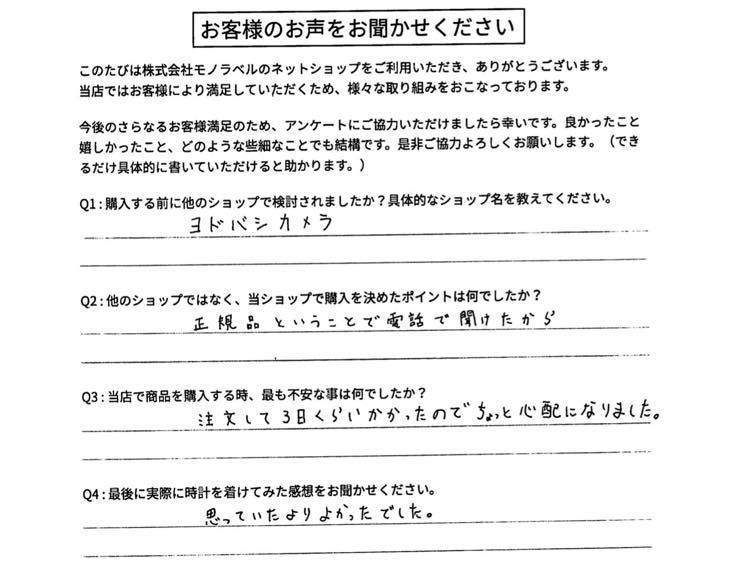 お客様のお声をお聞かせください
このたびは株式会社モノラベルのネットショップをご利用いただき、ありがとうございます。
当店ではお客様により満足していただくため、様々な取り組みをおこなっております。
今後のさらなるお客様満足のため、アンケートにご協力いただけましたら幸いです。良かったこと
嬉しかったこと、どのような些細なことでも結構です。是非ご協力よろしくお願いします。（でき
るだけ具体的に書いていただけると助かります。）
Q1：購入する前に他のショップで検討されましたか？具体的なショップ名を教えてください。
ヨドバシカメラ
Q2：他のショップではなく、当ショップで購入を決めたポイントは何でしたか？
正規品ということで電話で聞けたから
Q3：当店で商品を購入する時、最も不安な事は何でしたか？
注文して3日くらいかかったのでちょっと心配になりました。
Q4：最後に実際に時計を着けてみた感想をお聞かせください。
思っていたよりよかったでした。